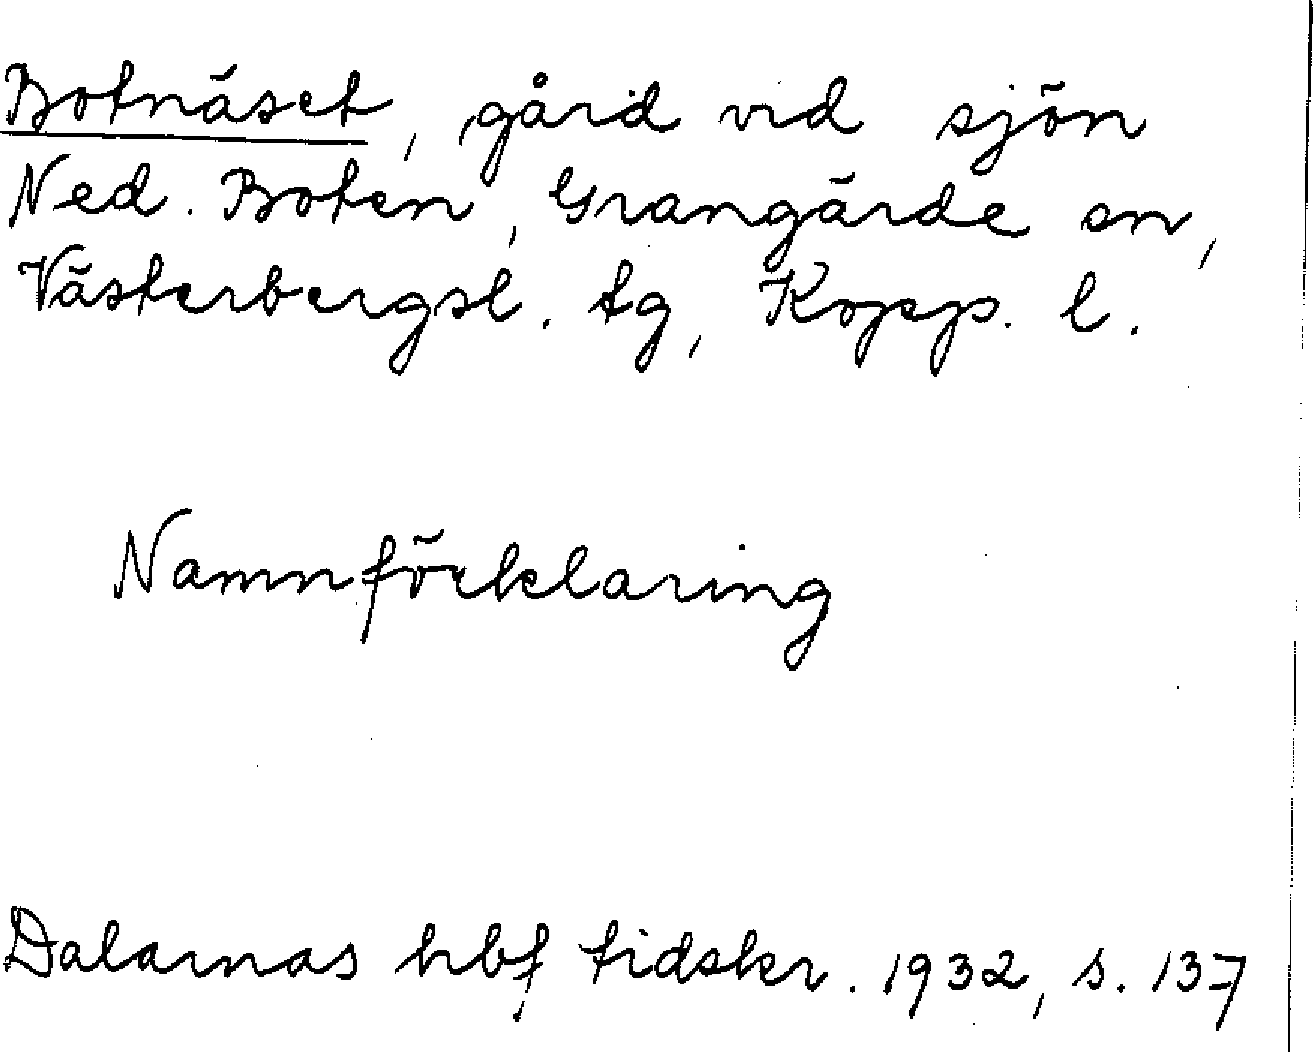 Botnäset, gård vid sjön
Ned. Boten, Grangärde sn,
Västerbergsl. tg, Kopp. l.
Namnförklaring
Dalarnas hbf tidskr. 1932, s. 137